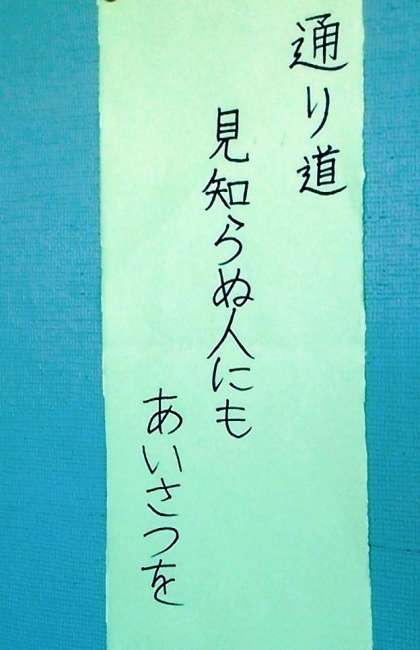 通り道
見知らぬ人にも
あいさつを